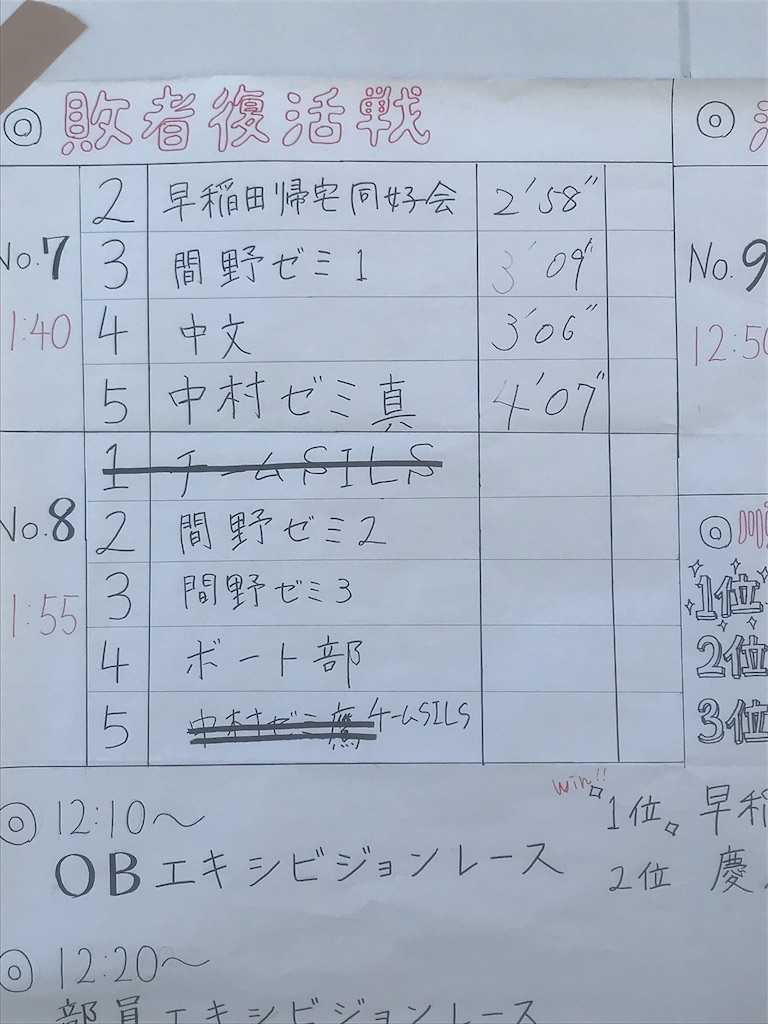 ◎ 敗者復活戦
No.7
1:40
2 早稲田帰宅同好会 2'58"
3 間野ゼミ1 3'09"
4 中文 3'06"
5 中村ゼミ真 4'07"
No.8
1:55
1 チームSILS
2 間野ゼミ2
3 間野ゼミ3
4 ボート部
5 中村ゼミ鷹 チームSILS
◎ 12:10〜
OBエキシビジョンレース
◎ 12:20〜
部員エキシビジョンレース
◎
No.9
12:50
◎
1位
2位
3位
win!!
1位 早稲
2位 慶